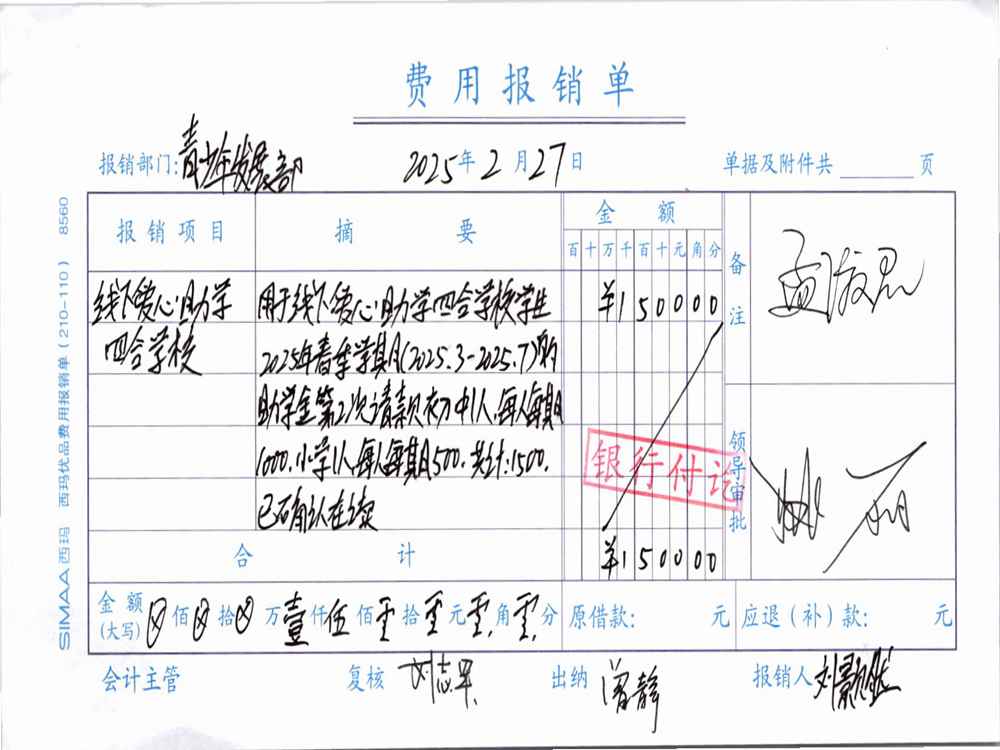 费用报销单
报销部门:青少年发展部 2025年2月27日 单据及附件共 页
报销项目 摘要 金额 备注
百十万千百十元角分
线下爱心助学 用于线下爱心助学四合学校学生 ¥150000
四合学校 2025年春季学期(2025.3-2025.7)的
助学金第2次请款初中1人,每人每期
1000.小学1人,每人每期500.共计:1500.
已确认在读
银行付讫
领导审批
合计 ¥150000
金额(大写) 佰 拾 万壹仟伍佰零拾零元零角零分 原借款: 元 应退(补)款: 元
会计主管 复核 刘志军 出纳 曾静 报销人 刘颢然
SIMAA西玛 西玛优品费用报销单(210-110) 8560